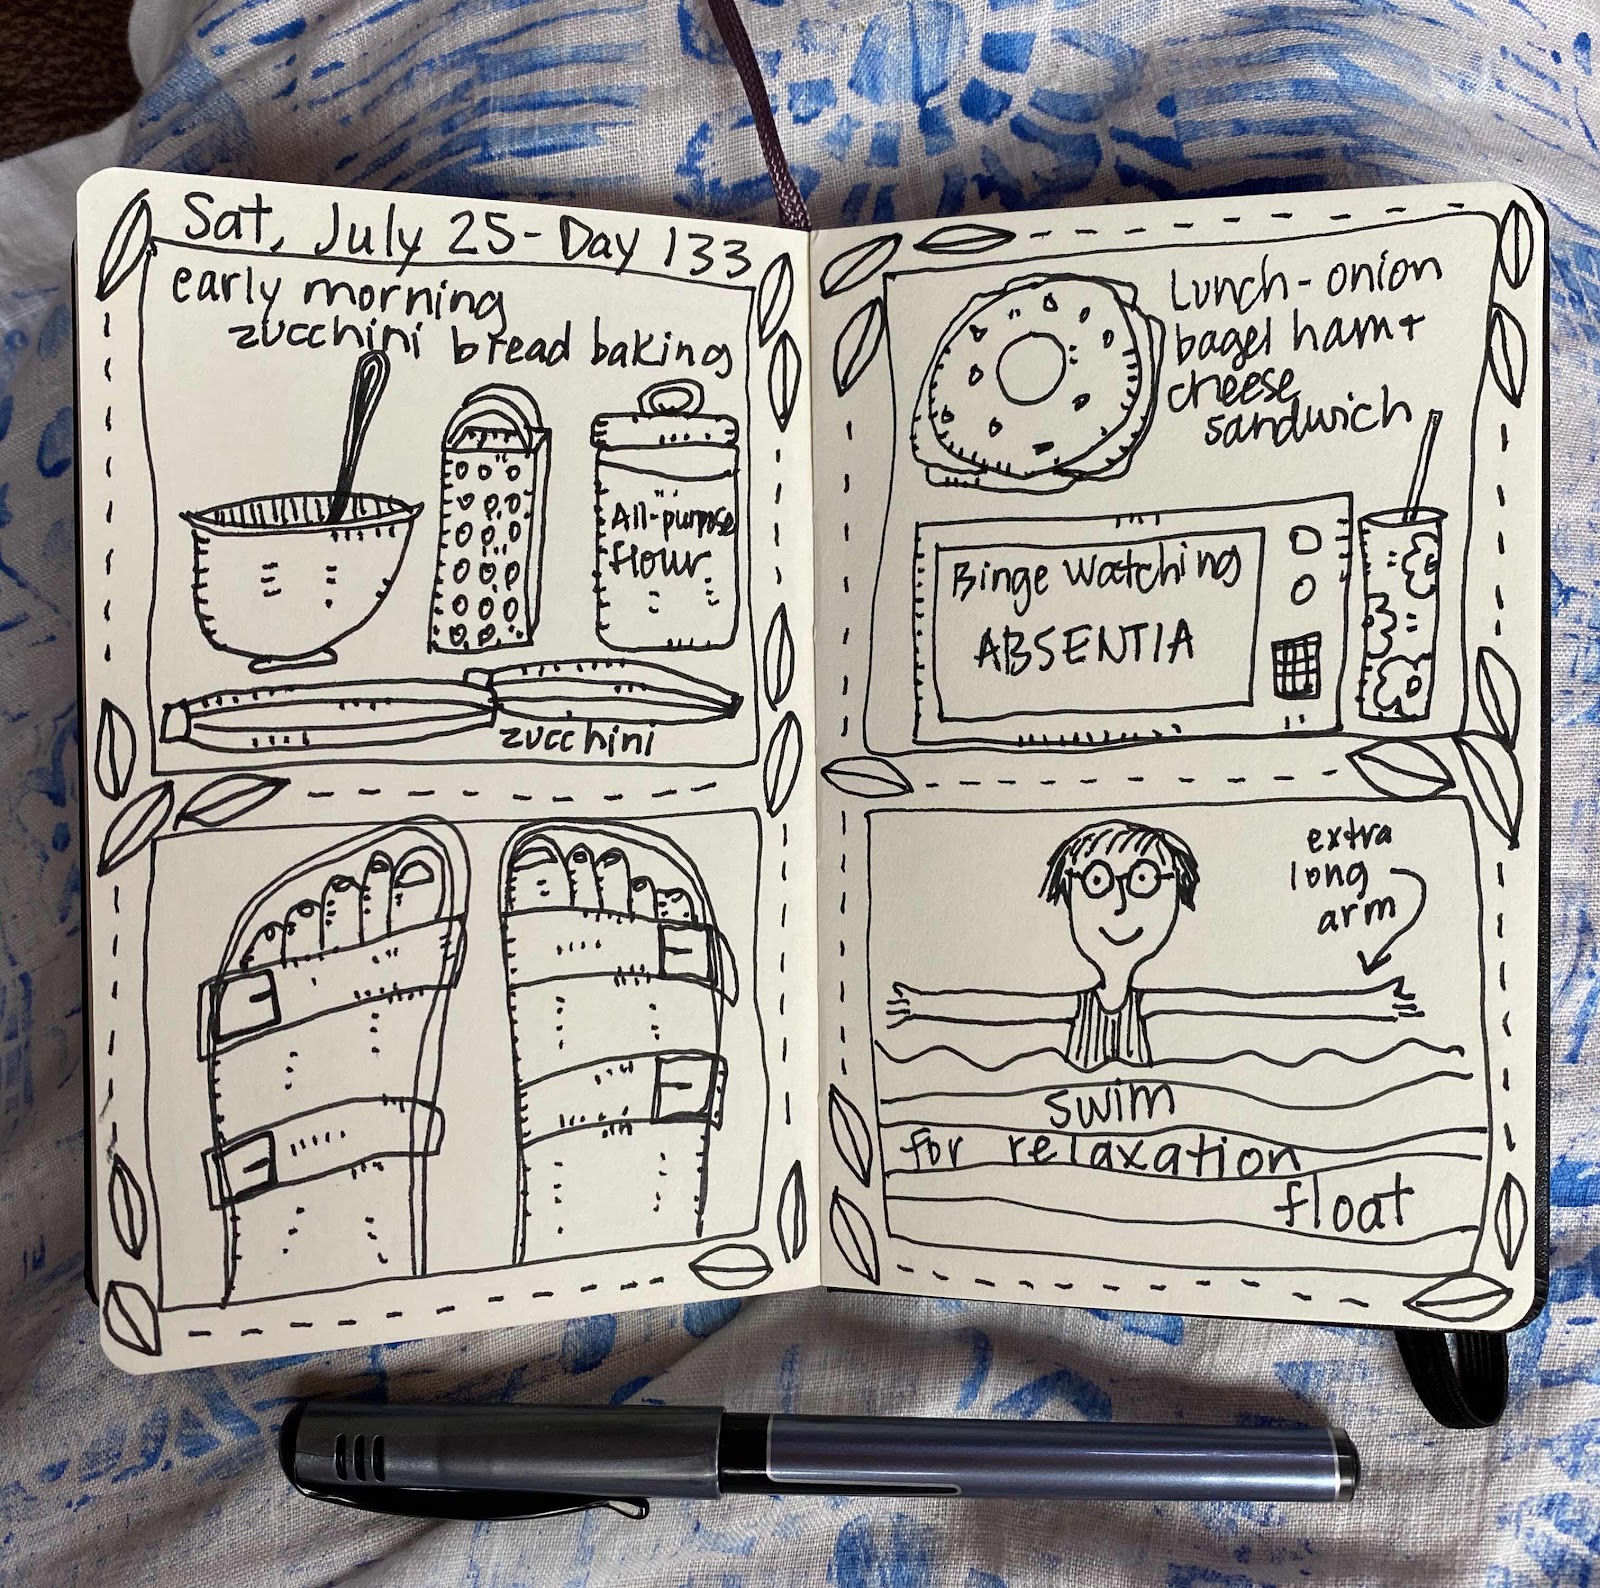 Sat, July 25 - Day 133
early morning
zucchini bread baking
All-purpose
flour
zucchini
Lunch - onion
bagel ham +
cheese
sandwich
Binge Watching
ABSENTIA
extra
long
arm
swim
for relaxation
float